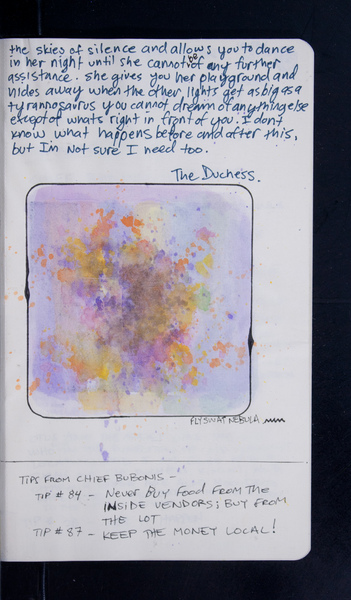 the skies of silence and allows you to dance
in her night until she cannot be of any further
assistance. She gives you her playground and
hides away when the other lights get as big as a
tyrannosaurus you cannot dream of anything else
except of whats right in front of you. I don't
know what happens before and after this,
but I'm not sure I need too.
The Duchess.
FLYSWAT NEBULA
TIPS FROM CHIEF BUBONIS -
TIP #84 - NEVER BUY FOOD FROM THE
INSIDE VENDORS; BUY FROM
THE LOT
TIP #87 - KEEP THE MONEY LOCAL!